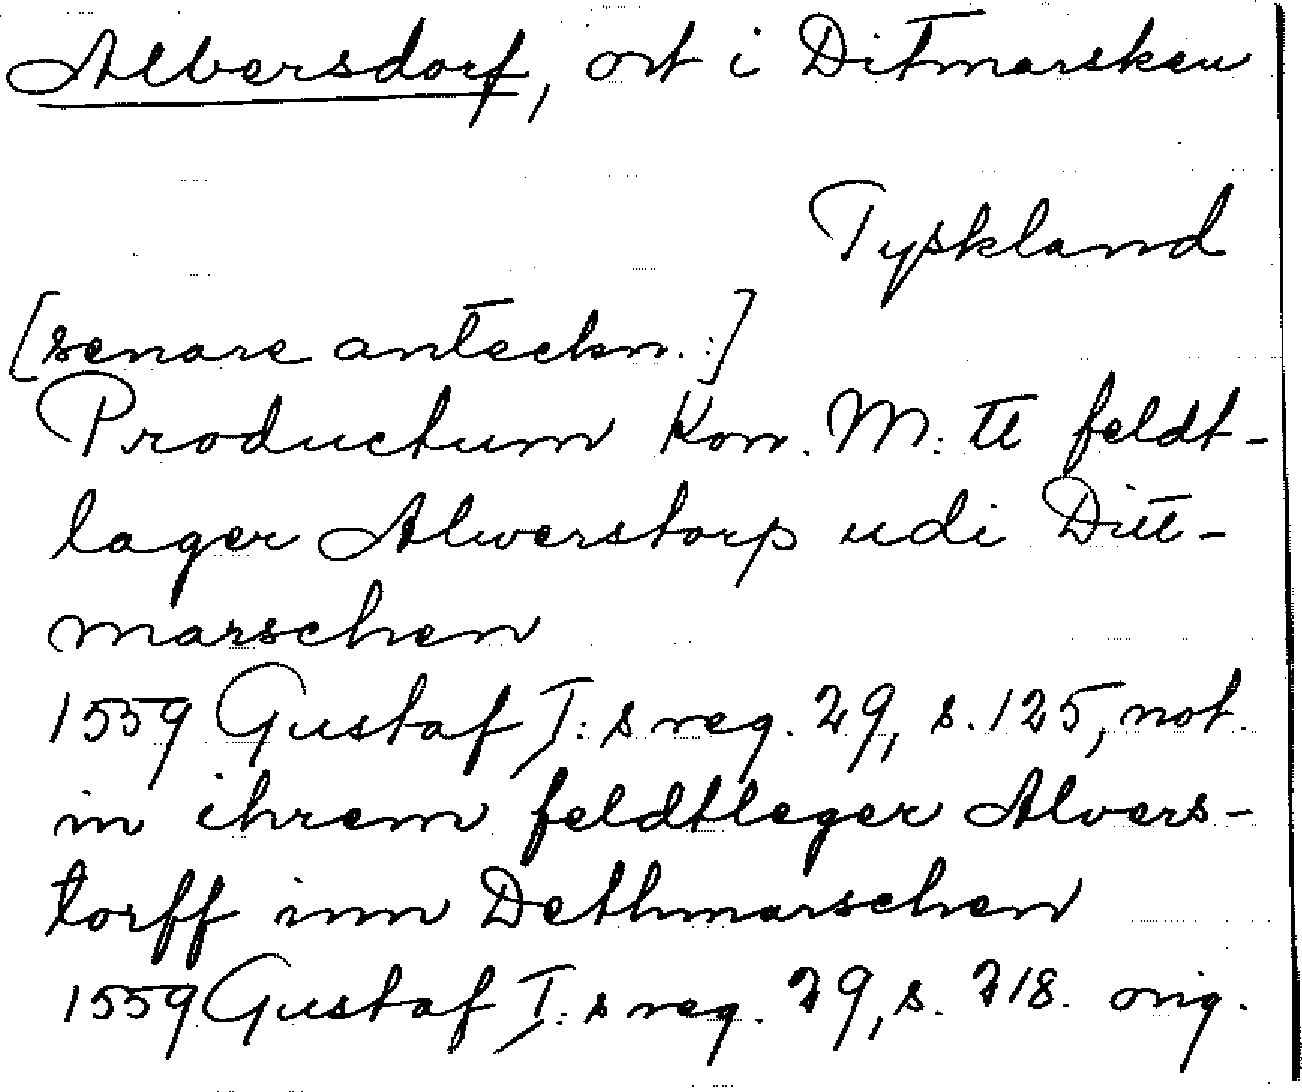 Albersdorf, ort i Ditmarsken
Tyskland
[senare anteckn.:]
Productum Kon. M:tt feldt-
lager Alwerstorp udi Ditt-
marschen
1559 Gustaf I:s reg. 29, s. 125, not.
in ihrem feldtleger Alvers-
torff inn Dethmarschen
1559 Gustaf I:s reg. 29, s. 718. orig.